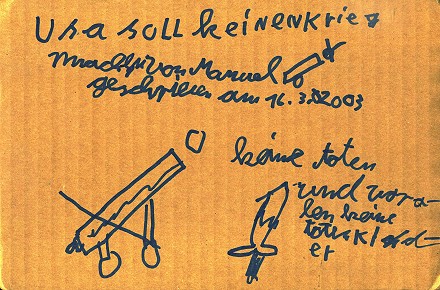 Usa soll keinenkrieg
von Manuel
geschriben am 16.3.2003
keine toten
und vor a-
len keine
toten kind-
er